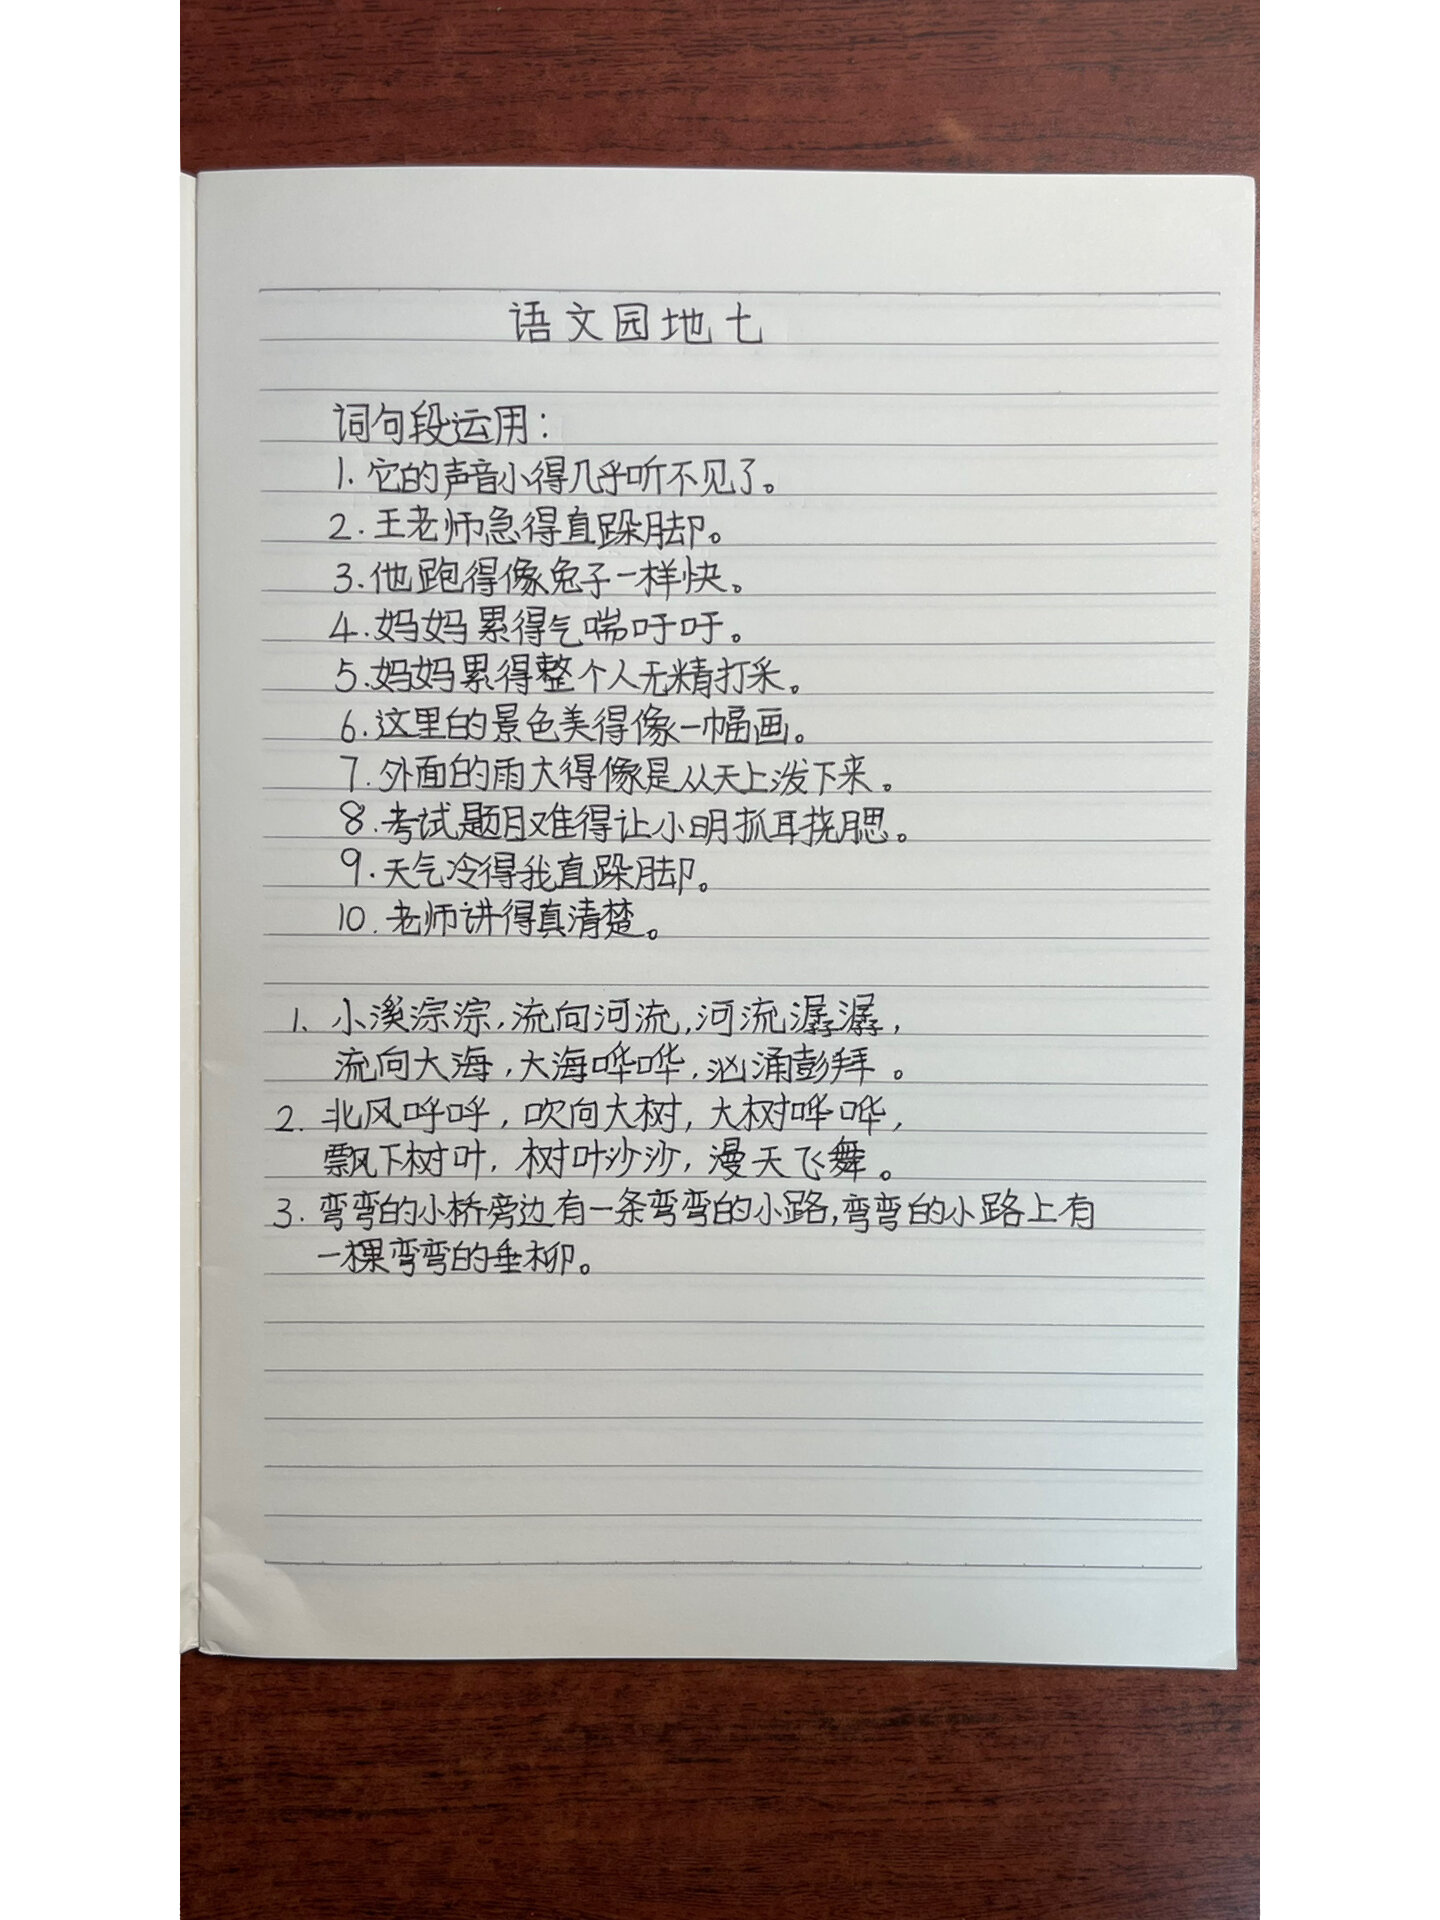 语文园地七
词句段运用：
1.它的声音小得几乎听不见了。
2.王老师急得直跺脚。
3.他跑得像兔子一样快。
4.妈妈累得气喘吁吁。
5.妈妈累得整个人无精打采。
6.这里的景色美得像一幅画。
7.外面的雨大得像是从天上泼下来。
8.考试题目难得让小明抓耳挠腮。
9.天气冷得我直跺脚。
10.老师讲得真清楚。
1、小溪淙淙，流向河流，河流潺潺，
流向大海，大海哗哗，汹涌彭拜。
2.北风呼呼，吹向大树，大树哗哗，
飘下树叶，树叶沙沙，漫天飞舞。
3.弯弯的小桥旁边有一条弯弯的小路，弯弯的小路上有
一棵弯弯的垂柳。